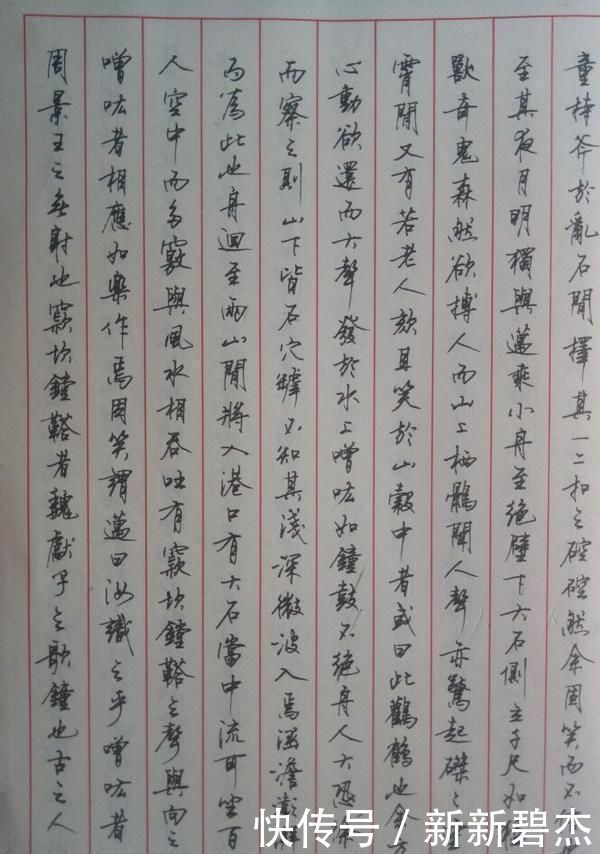 童持斧於亂石間擇其一二扣之硿硿然余固笑而不
至其夜月明獨與邁乘小舟至絕壁下大石側立千尺如猛
獸奇鬼森然欲搏人而山上栖鶻聞人聲亦驚起磔之雲
霄間又有若老人欬且笑於山穀中者或曰此鸛鶴也余方
心動欲還而大聲發於水上噌吰如鐘鼓不絕舟人大恐余
而察之則山下皆石穴罅不知其淺深微波入焉涵澹彭湃
而為此也舟迴至兩山間將入港口有大石當中流可坐百
人空中而多竅與風水相吞吐有窾坎鏜鞳之聲與向之
噌吰者相應如樂作焉因笑謂邁曰汝識之乎噌吰者
周景王之無射也窾坎鏜鞳者魏獻子之歌鐘也古之人
快传号 / 新新碧杰